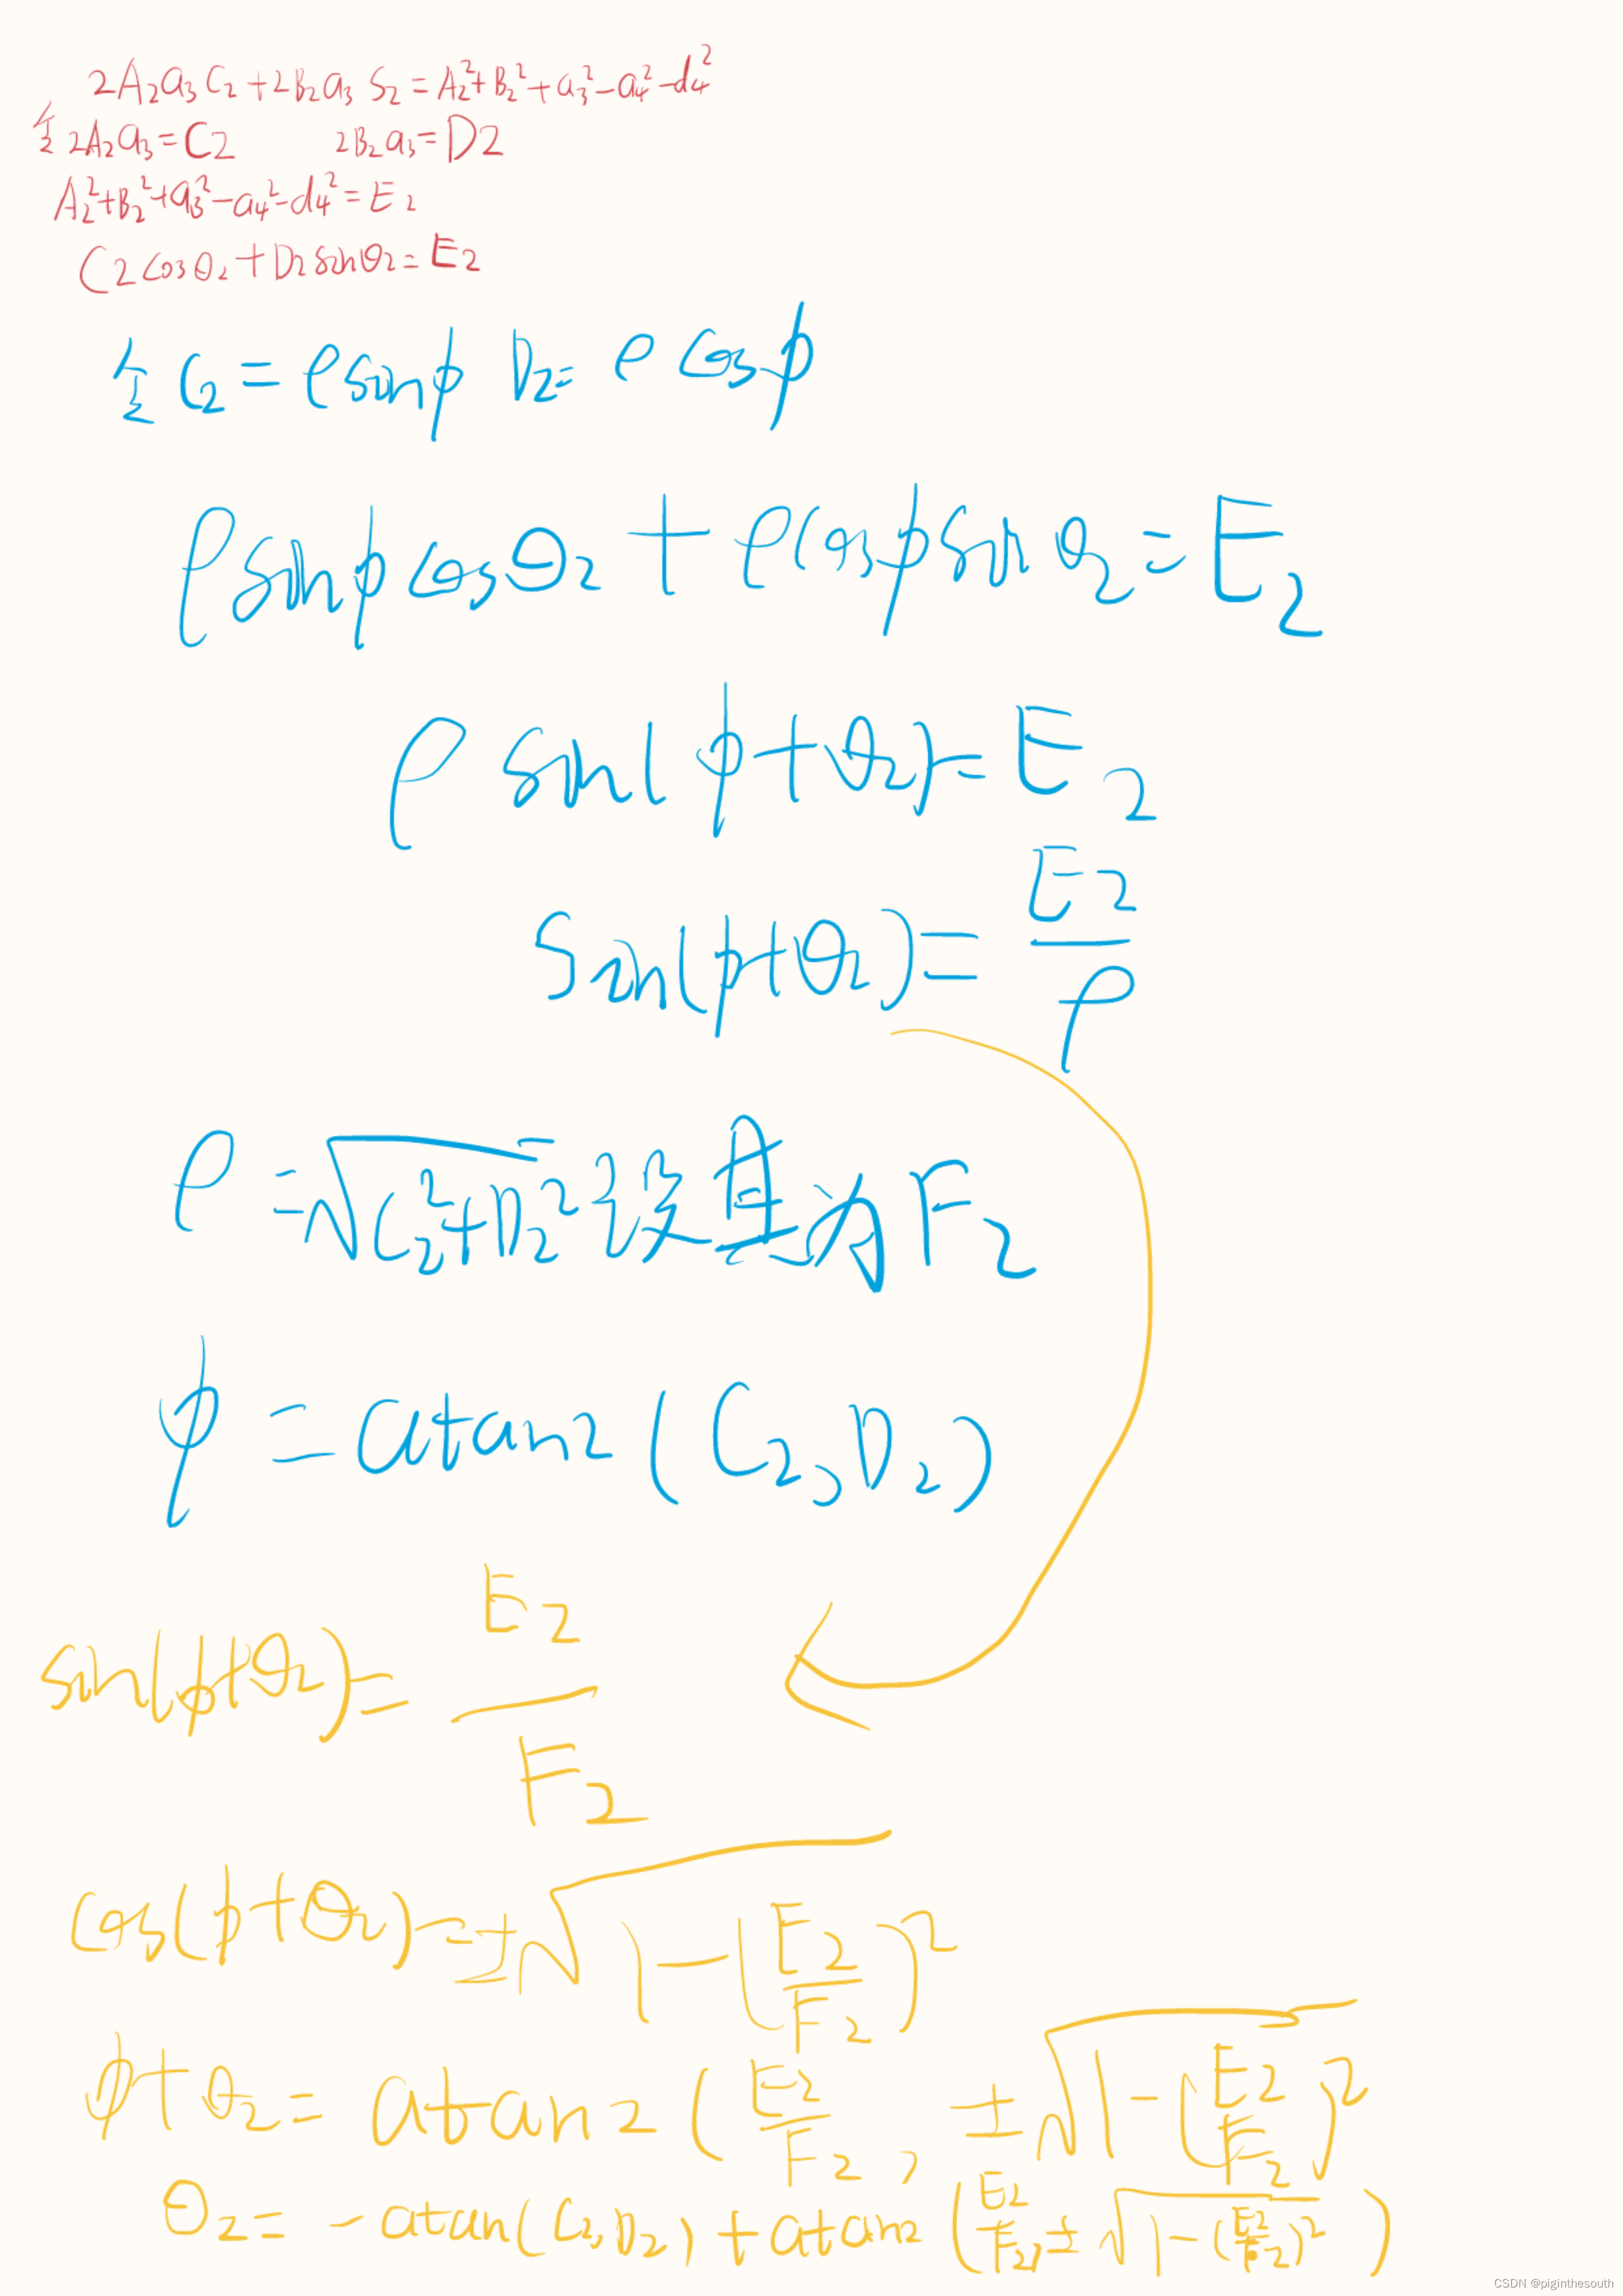 2A₂a₃C₂+2B₂a₃S₂=A₂²+B₂²+a₃²-a₄²-d₄²
令2A₂a₃=C2 2B₂a₃=D2
A₂²+B₂²+a₃²-a₄²-d₄²=E₂
C2cosθ₂+D₂sinθ₂=E₂
令C₂=ρsinφ D₂=ρcosφ
ρsinφcosθ₂+ρcosφsinθ₂=E₂
ρsin(φ+θ₂)=E₂
sin(φ+θ₂)=E₂/ρ
ρ=√(C₂²+D₂²) 设其为F₂
φ=atan2(C₂,D₂)
sin(φ+θ₂)=E₂/F₂
cos(φ+θ₂)=±√(1-(E₂/F₂)²)
φ+θ₂=atan2(E₂/F₂,±√(1-(E₂/F₂)²
θ₂=-atan(C₂,D₂)+atan2(E₂/F₂,±√(1-(E₂/F₂)²))
CSDN @piginthesouth